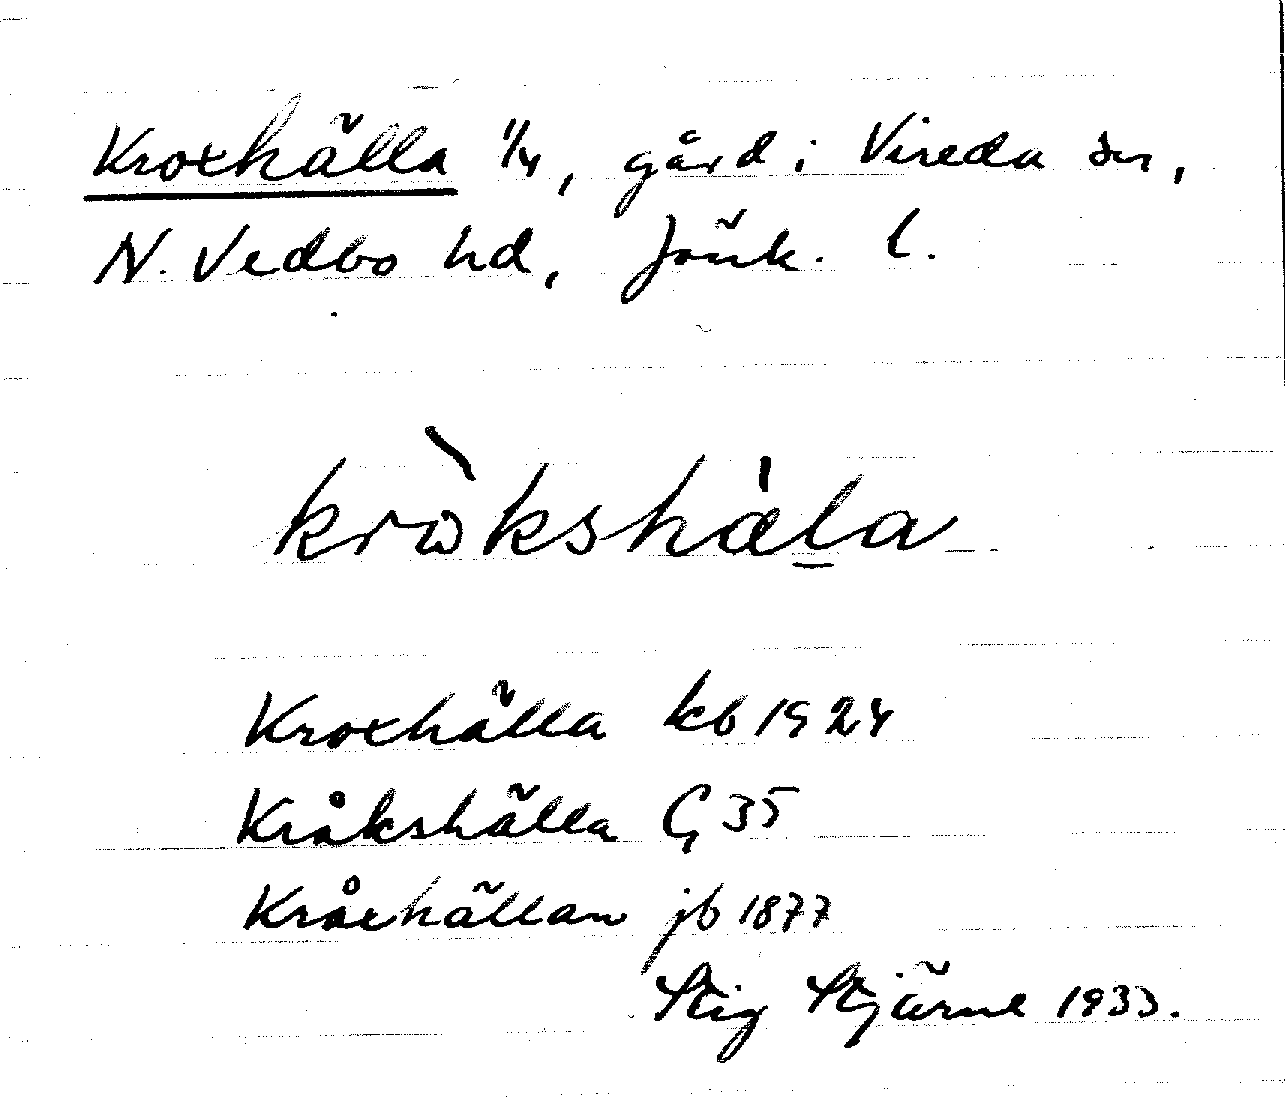 Kroxhälla 1/4, gård i Vireda sn,
N. Vedbo hd, Jönk. l.
krὼkshäla
Kroxhälla kb 1924
Kråkshälla G 35
Kråxhällan jb 1877
Stig Stjärne 1933.